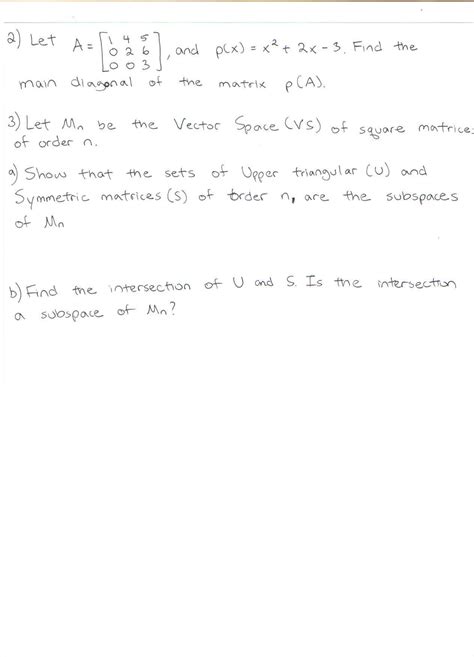 2) Let A = [1 4 5
0 2 6
0 0 3], and p(x) = x² + 2x - 3. Find the
main diagonal of the matrix p(A).
3) Let Mn be the Vector Space (VS) of square matrices
of order n.
a) Show that the sets of Upper triangular (U) and
Symmetric matrices (S) of order n, are the subspaces
of Mn
b) Find the intersection of U and S. Is the intersection
a subspace of Mn?